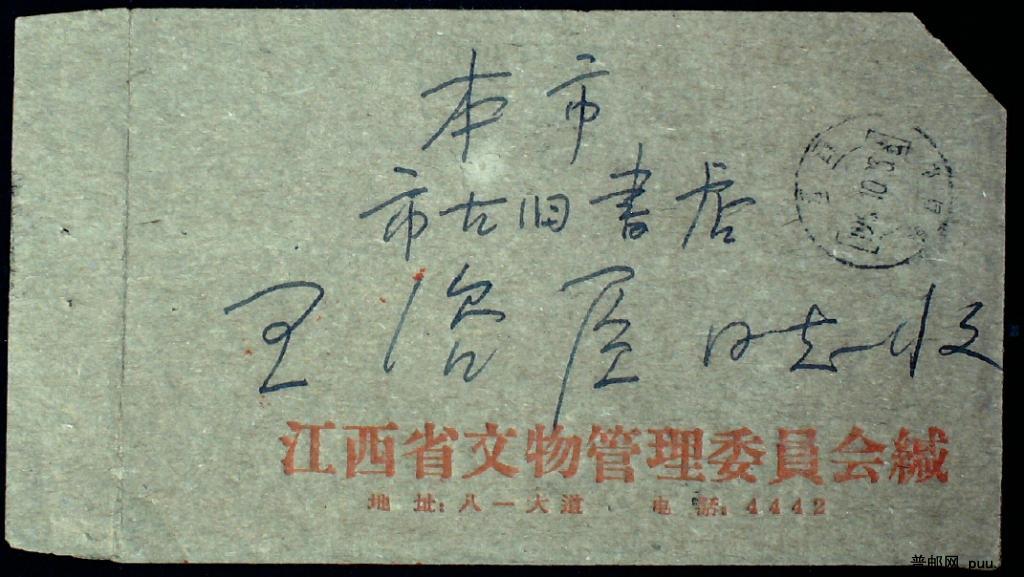 本市
市古旧書店
王治臣同志收
江西省文物管理委員会緘
地址：八一大道 电話：4442
普邮网 puu